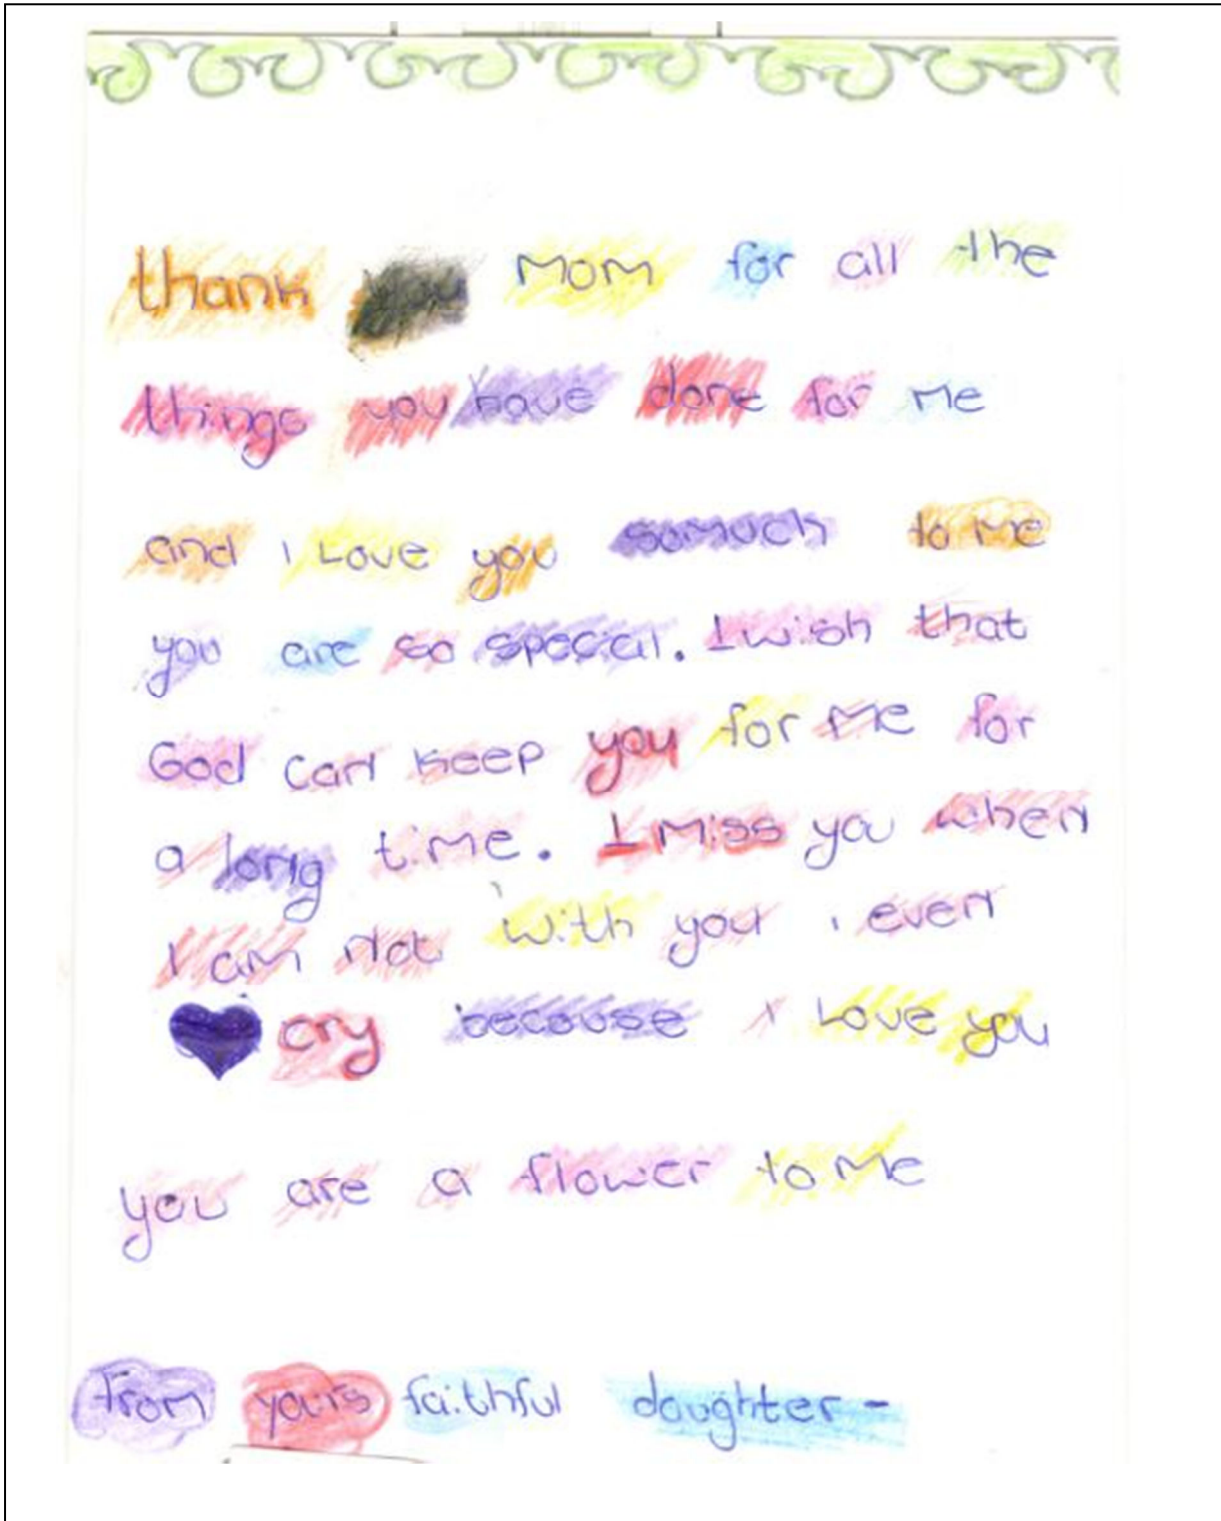 thank you Mom for all the
things you have done for me
and i Love you somuch to me
you are so special. I wish that
God can keep you for me for
a long time. I miss you when
I am not with you i even
cry because I Love you
you are a flower to me
From yours faithful daughter-